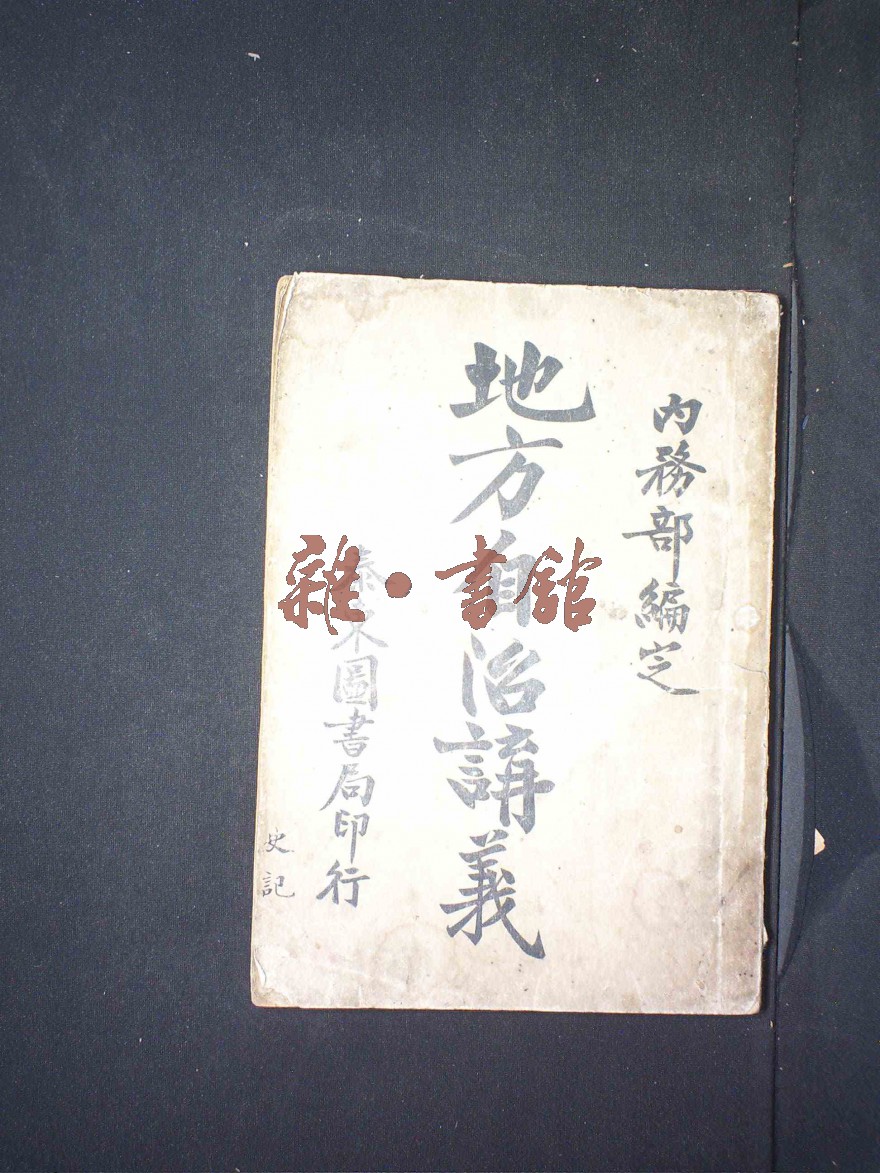 內務部編定
地方自治講義
泰東圖書局印行
史記
雜·書館